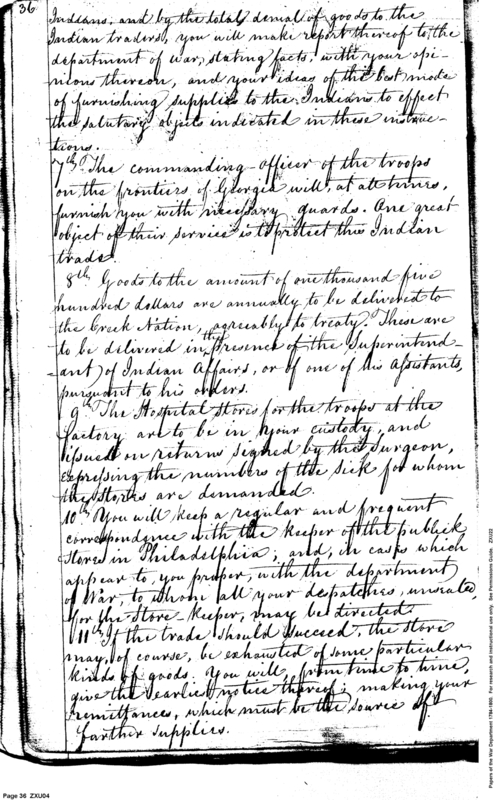 36
Indians, and by the total denial of goods to the
Indian traders, you will make report thereof to the
department of war, stating facts, with your opi-
nions thereon, and your ideas of the best mode
of furnishing supplies to the Indians to effect
the salutary objects indicated in these instruc-
tions.
7th. The commanding officer of the troops
on the frontiers of Georgia will, at all times,
furnish you with necessary guards. One great
object of their service is to protect this Indian
trade.
8th Goods to the amount of one thousand five
hundred dollars are annually to be delivered to
the Creek Nation, agreeably to treaty. These are
to be delivered in the presence of the Superintend-
ant of Indian Affairs, or of one of his Assistants,
pursuant to his orders.
9th The Hospital Stores for the troops at the
factory are to be in your custody, and
issued on returns signed by the Surgeon,
expressing the numbers of the sick for whom
the stores are demanded.
10th You will keep a regular and frequent
correspondence with the keeper of the publick
Stores in Philadelphia; and, in cases which
appear to you proper, with the department
of War, to whom all your despatches, unsealed,
for the Store-keeper, may be directed.
11th If the trade should succeed, the store
may, of course, be exhausted of some particular
kinds of goods. You will, from time to time,
give the earliest notice thereof; making your
remittances, which must be the source of
farther supplies.
Page 36 ZXU04